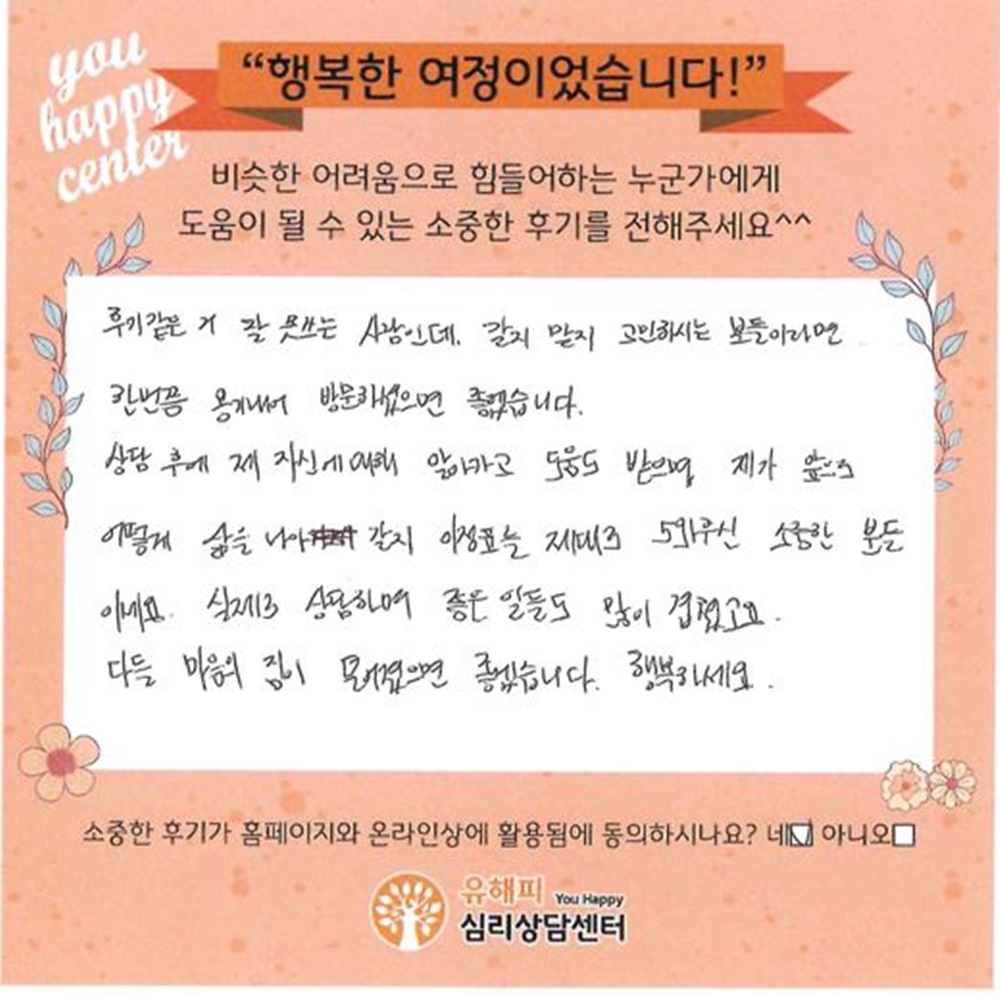 you
happy
center
“행복한 여정이었습니다!”
비슷한 어려움으로 힘들어하는 누군가에게
도움이 될 수 있는 소중한 후기를 전해주세요^^
후기같은 거 잘 못쓰는 사람인데. 갈지 말지 고민하시는 분들이라면
한번쯤 용기내어 방문하셨으면 좋겠습니다.
상담 후에 제 자신에 대해 알아가고 도움도 받으며 제가 앞으로
어떻게 삶을 나아 갈지 이정표를 제대로 도와주신 소중한 분들
이세요. 실제로 상담하며 좋은 일들도 많이 겹쳤고요.
다들 마음의 짐이 덜어졌으면 좋겠습니다. 행복하세요.
소중한 후기가 홈페이지와 온라인상에 활용됨에 동의하시나요? 네☑ 아니오☐
유해피 You Happy
심리상담센터